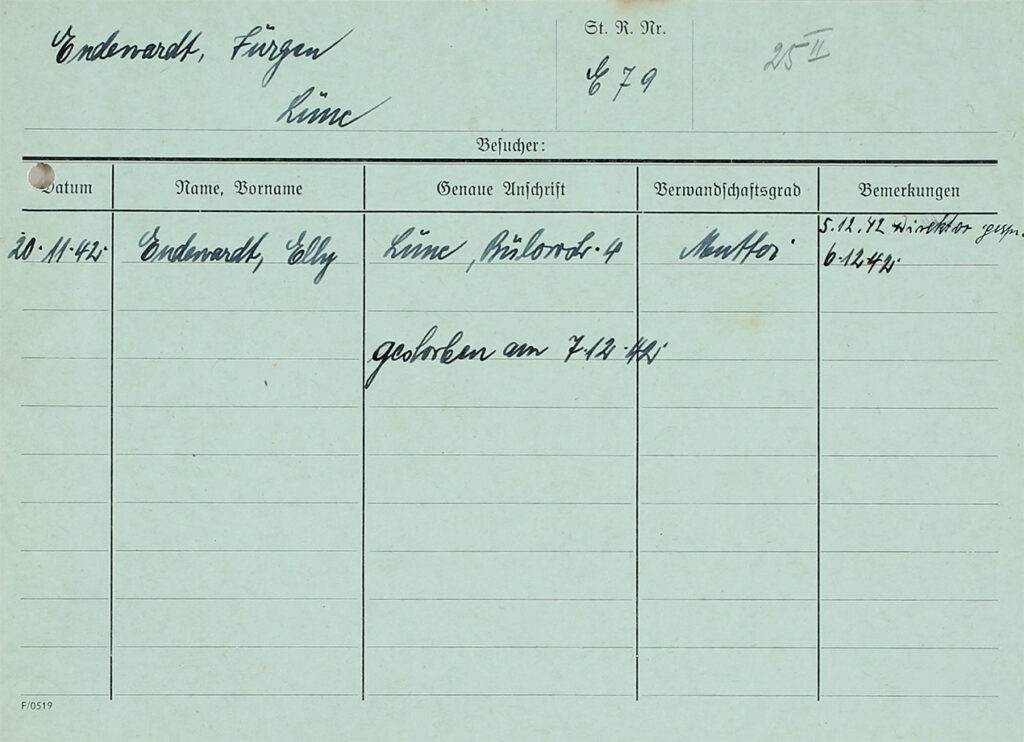 Endewardt, Jürgen
Lüne
St. R. Nr.
E 79
25 II
Besucher:
Datum Name, Vorname Genaue Anschrift Verwandschaftsgrad Bemerkungen
5.12.42 Direktor gespr.
20.11.42. Endewardt, Elly Lüne, Bülowstr. 4 Mutter 6.12.42.
gestorben am 7.12.42.
F/0519